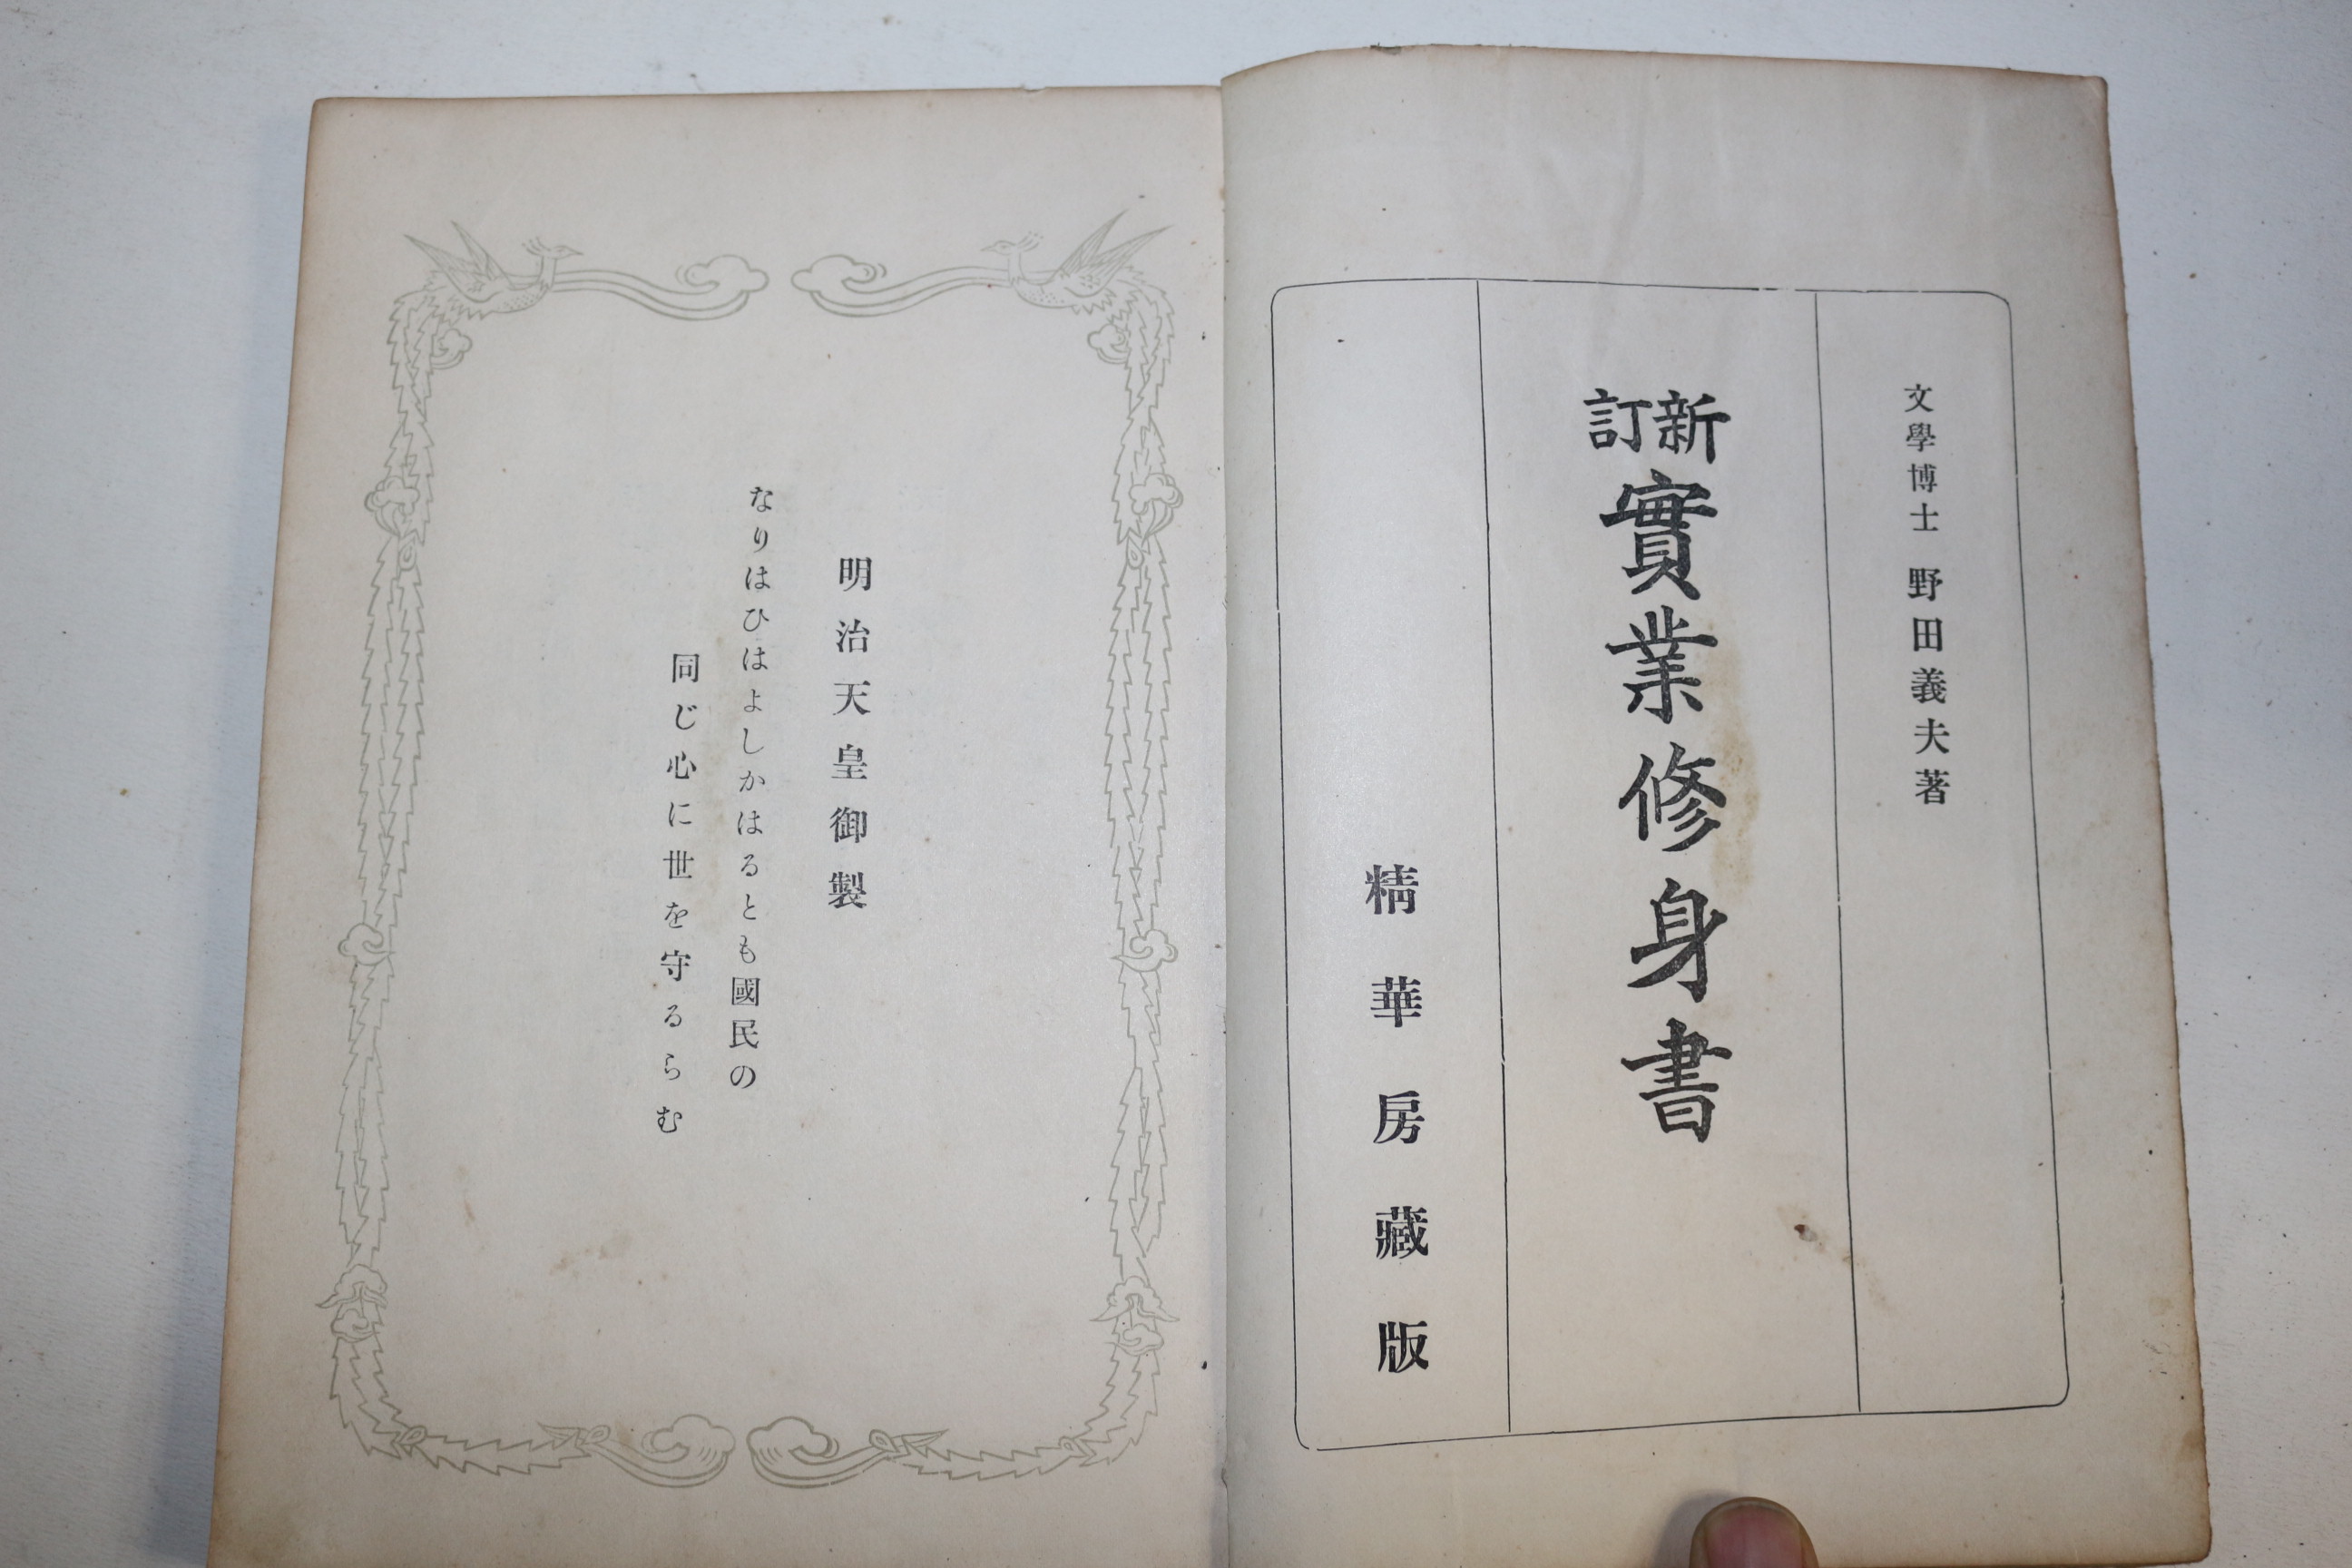 文學博士 野田義夫著
新訂 實業修身書
精華房藏版
明治天皇御製
なりはひはよしかはるとも國民の
同じ心に世を守るらむ